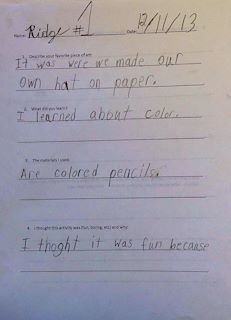 Name: Ridge #1 Date: 12/11/13
1. Describe your favorite piece of art:
It was were we made our
own hat on paper.
2. What did you learn?
I learned about color.
3. The materials I used:
Are colored pencils.
4. I thought this activity was (fun, boring, etc) and why:
I thoght it was fun because